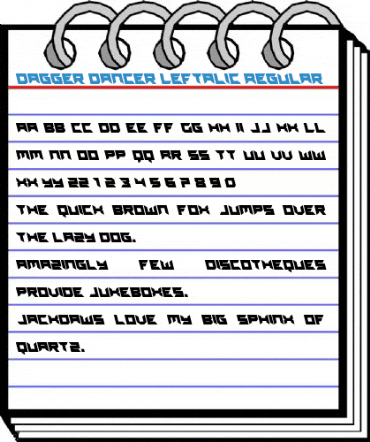 DAGGER DANCER LEFTALIC REGULAR
AA BB CC DD EE FF GG HH II JJ KK LL
MM NN OO PP QQ RR SS TT UU VV WW
XX YY ZZ 1 2 3 4 5 6 7 8 9 0
THE QUICK BROWN FOX JUMPS OVER
THE LAZY DOG.
AMAZINGLY FEW DISCOTHEQUES
PROVIDE JUKEBOXES.
JACKDAWS LOVE MY BIG SPHINX OF
QUARTZ.